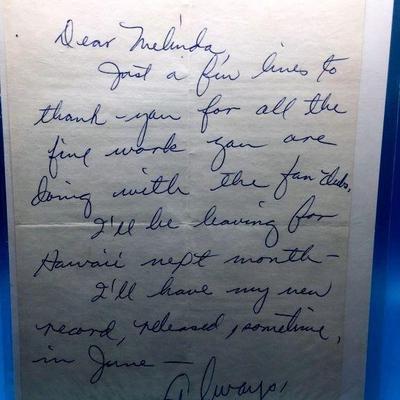 Dear Melinda,
Just a few lines to
thank-you for all the
fine work you are
doing with the fan clubs.
I'll be leaving for
Hawaii next month—
I'll have my new
record, released, sometime,
in June—
Always,